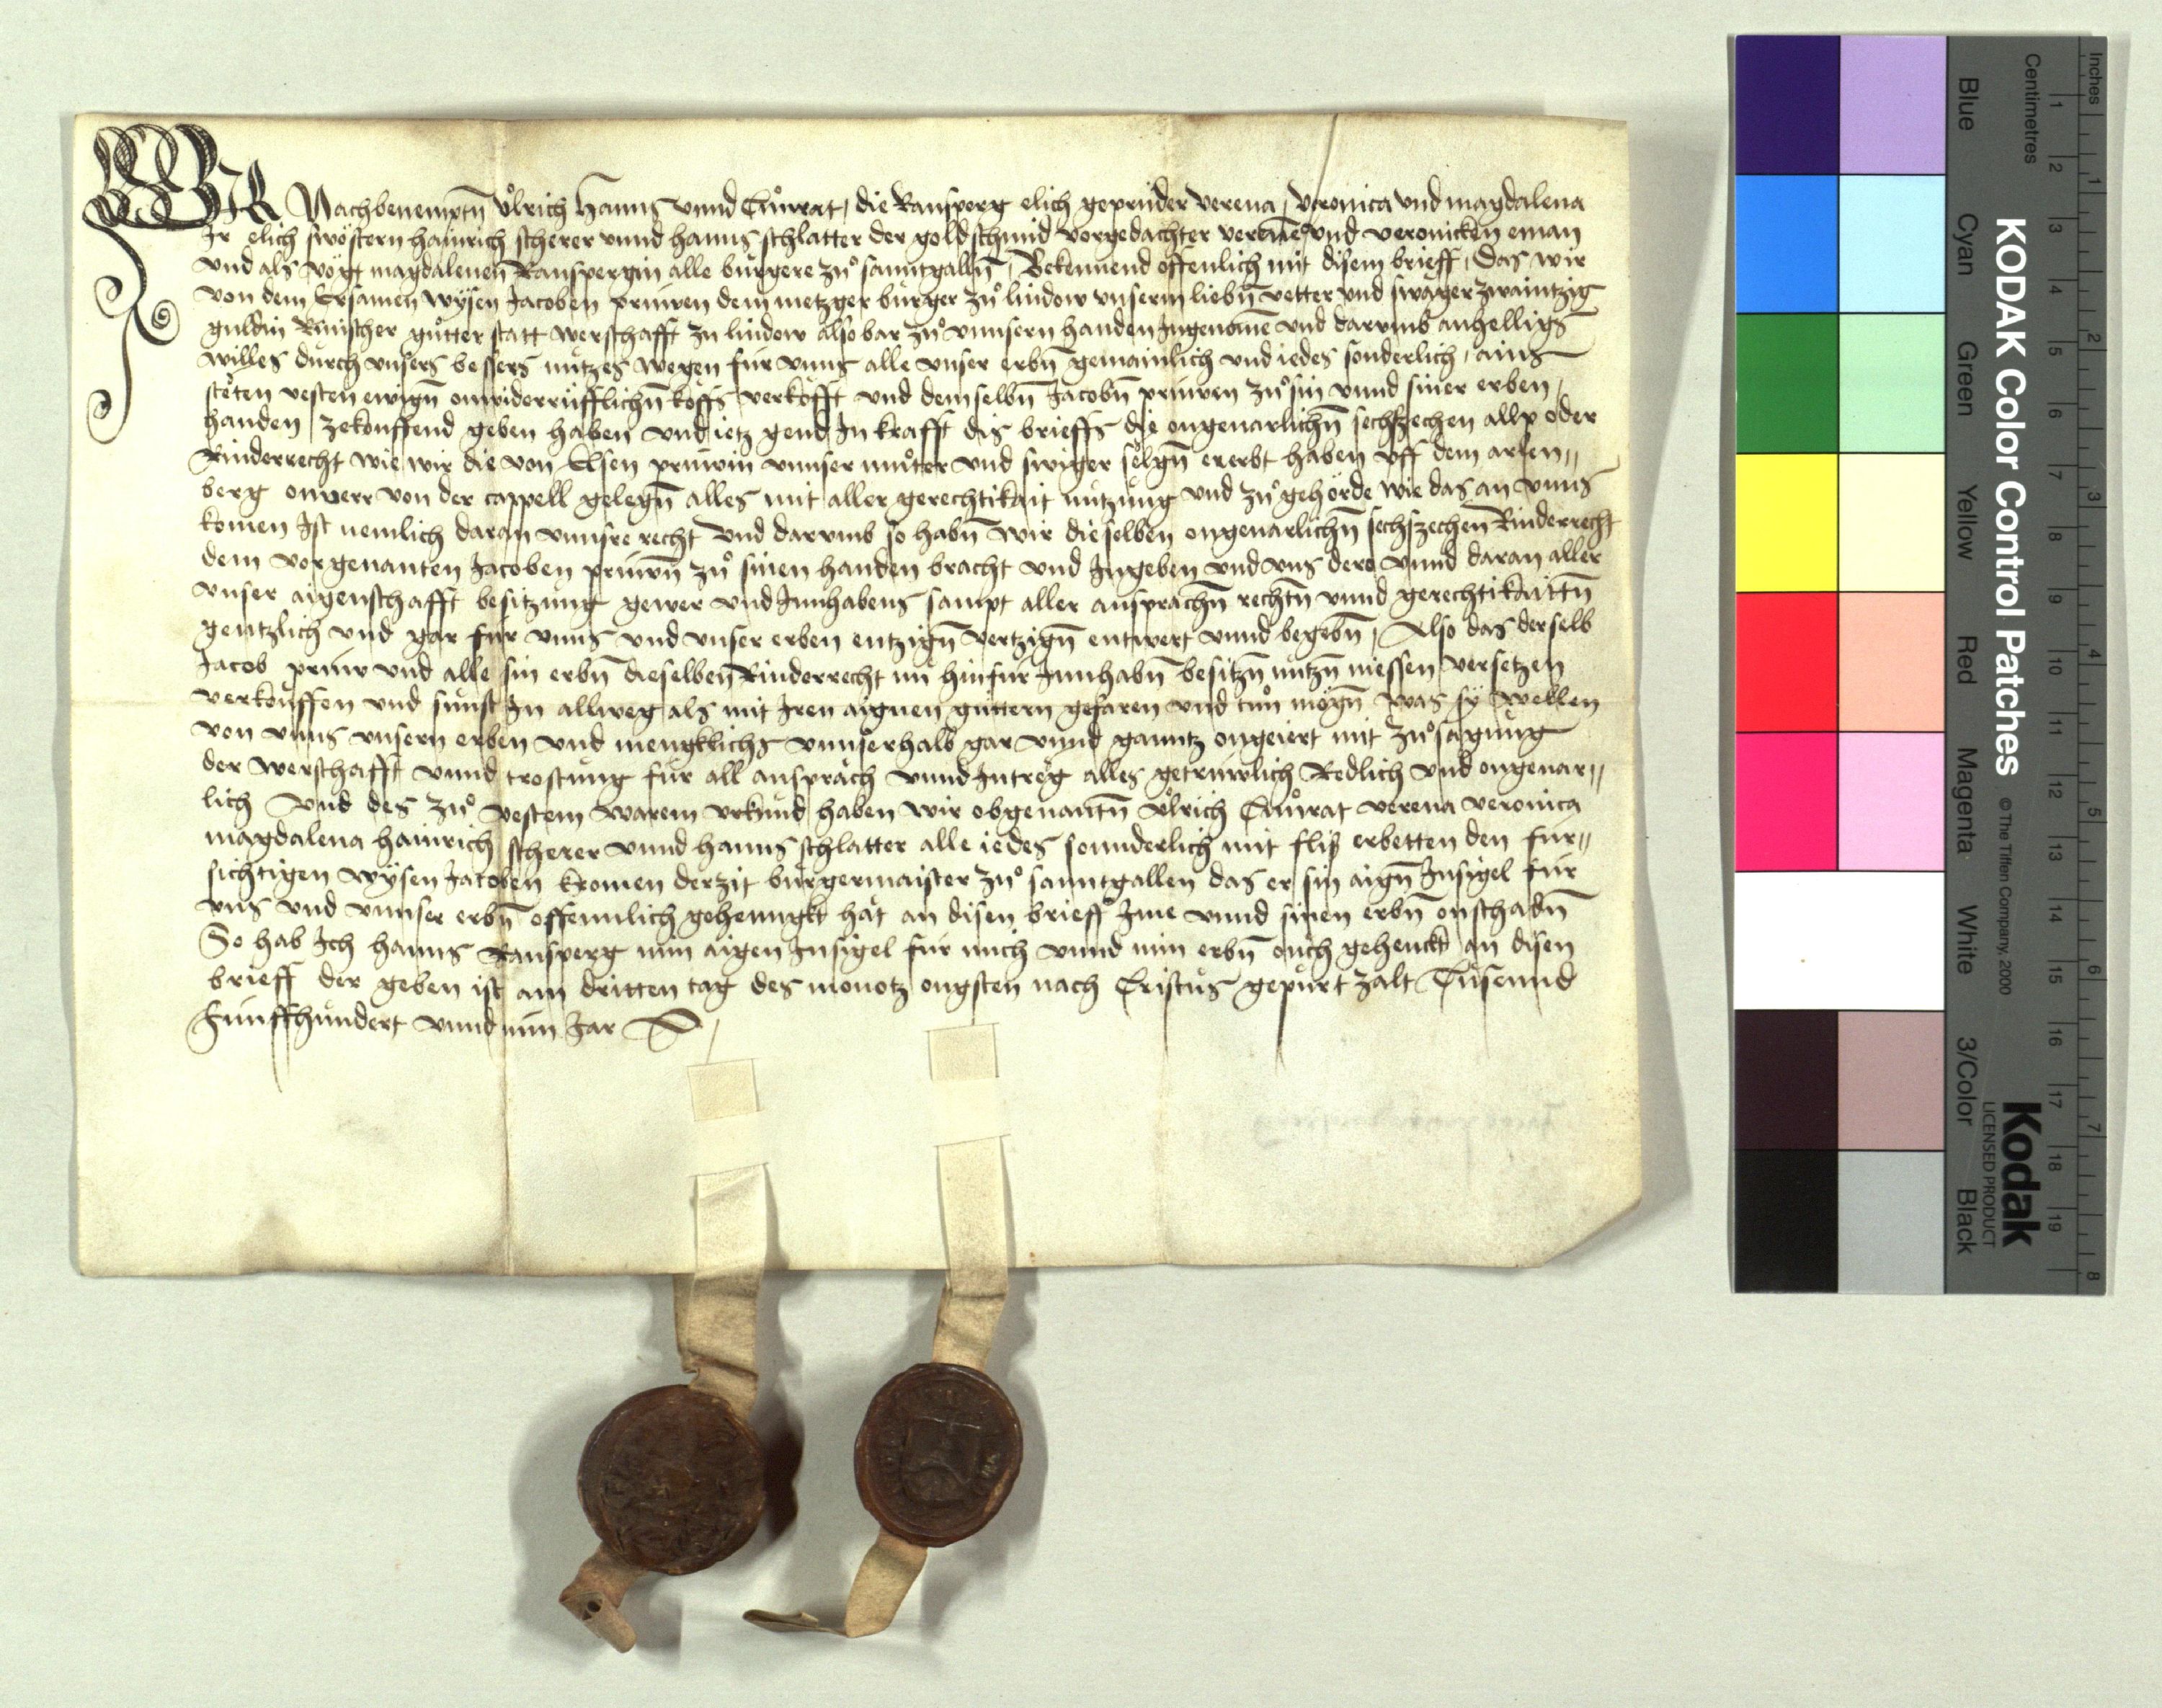 WIR Nachbenempten Uͦlrich Hanns unnd Cuͦnrat, die Ransperg elich geprüder verena, veronica und magdalena
Ir elich swöstern hainrich scherer unnd hanns schlatter der goldschmid vorgedachter verenē und veronicken eman
und als vögt magdalenen Ranspergin alle burgere zuͦ sanntgalln̄, Bekennend offenlich mit disem brieff, Das wir
von dem Ersamen wysen Jacoben prüwen dem metzger burger zuͦ lindow unserm liebn̄ vetter und swager zwaintzig
guldin Rinischer guͦtter statt werschafft zu lindow also bar zuͦ unnsern handen Ingenomē und darumb anhelligs
willes durch unsers bessers nutzes wegen für unns alle unser erbn̄ gemainlich und iedes sonderlich, ains
steten vesten ewign̄ onwiderrüfflichn̄ koffs verkofft und demselbn̄ Jacobn̄ prüwen zuͦ sin unnd siner erben,
handen zekouffend geben haben und ietz gend In krafft dis brieffs die ongevarlichn̄ sechszechen allp oder
Rinderrecht wie wir die von Elsen prüwin unnser muͦter und swiger selgn̄ ererbt haben uff dem arlen„
berg onverr von der cappell gelegn̄ alles mit aller gerechtikait nutzung und zuͦgehörde wie das an unns
komen Ist nemlich daran unnsre recht und darumb so habn̄ wir dieselben ongevarlichn̄ sechszechen Rinderrecht
dem vorgenanten Jacoben prüwn̄ zuͦ sinen handen bracht und Ingeben und uns dero unnd daran aller
unser aigenschafft besitzung gewer und Innhabens sampt aller ansprachn̄ rechtn̄ unnd gerechtikaittn̄
gentzlich und gar für unns und unser erben entzign̄ vertzign̄ entwert unnd begebn̄, Also das derselb
Jacob prüw und alle sin erbn̄ dieselben Rinderrecht nu hinfür Innhabn̄ besitzn̄ nutzn̄ niessen versetzen
verkouffen und sunst In allweg als mit Iren aignen guttern gefaren und tuͦn mögn̄ was sy wellen
von unns unsern erben und mengklichs unnserhalb gar unnd ganntz ongeiert mit zuͦsagung
der werschafft unnd trostung für all ansprach unnd Intreg alles getrüwlich Redlich und ongevar„
lich Und des zuͦ vestem warem urkund haben wir obgenantn̄ Uͦlrich Cuͦnrat verena veronica
magdalena hainrich scherer unnd hanns schlatter alle iedes sonnderlich mit fliß erbetten den für„
sichtigen wysen Jacoben kromen derzit burgermaister zuͦ sanntgallen das er sin aign̄ Insigel für
uns und unnser erbn̄ offennlich gehenngkt hat an disen brieff Ime unnd sinen erbn̄ onschadn̄
So hab Ich hanns Ransperg min aigen Insigel für mich unnd min erbn̄ ouch gehenckt an disen
brieff der geben ist am dritten tag des monotz ougsten nach Cristus gepurt zalt Tusennd
Fünffhundert unnd nün Jar
KODAK Color Control Patches © The Tiffen Company, 2000
Kodak
LICENSED PRODUCT
Blue Cyan Green Yellow Red Magenta White 3/Color Black
Centimetres 1 2 3 4 5 6 7 8 9 10 11 12 13 14 15 16 17 18 19
Inches 1 2 3 4 5 6 7 8